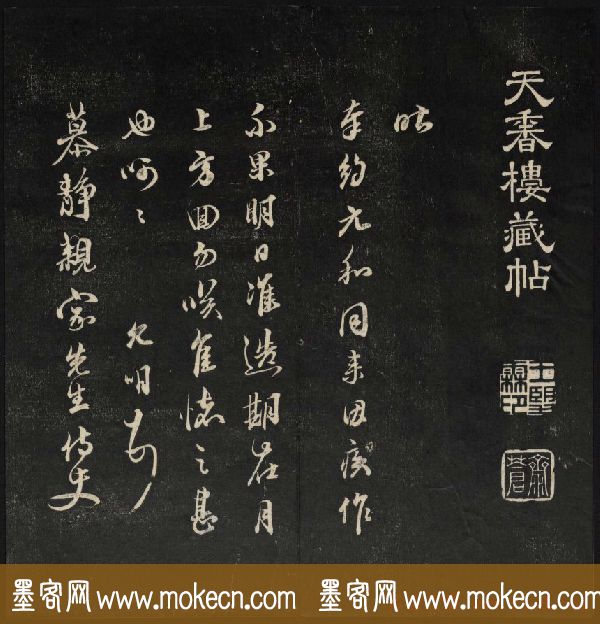 天香樓藏帖
昨
奉約允和同来因疾作
不果明日准造期在月
上方回勿咲隹懐之甚
也呵〻 允明頓
慕静親家先生侍史
墨客网 www.mokecn.com 墨客网 www.mokecn.com